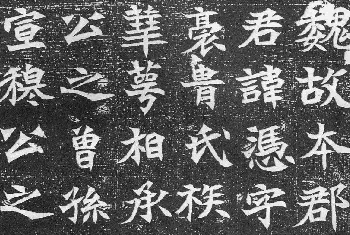 魏故本郡
君諱憑字
魯氏族
華萼相承
公之曾孫
宣穆公之